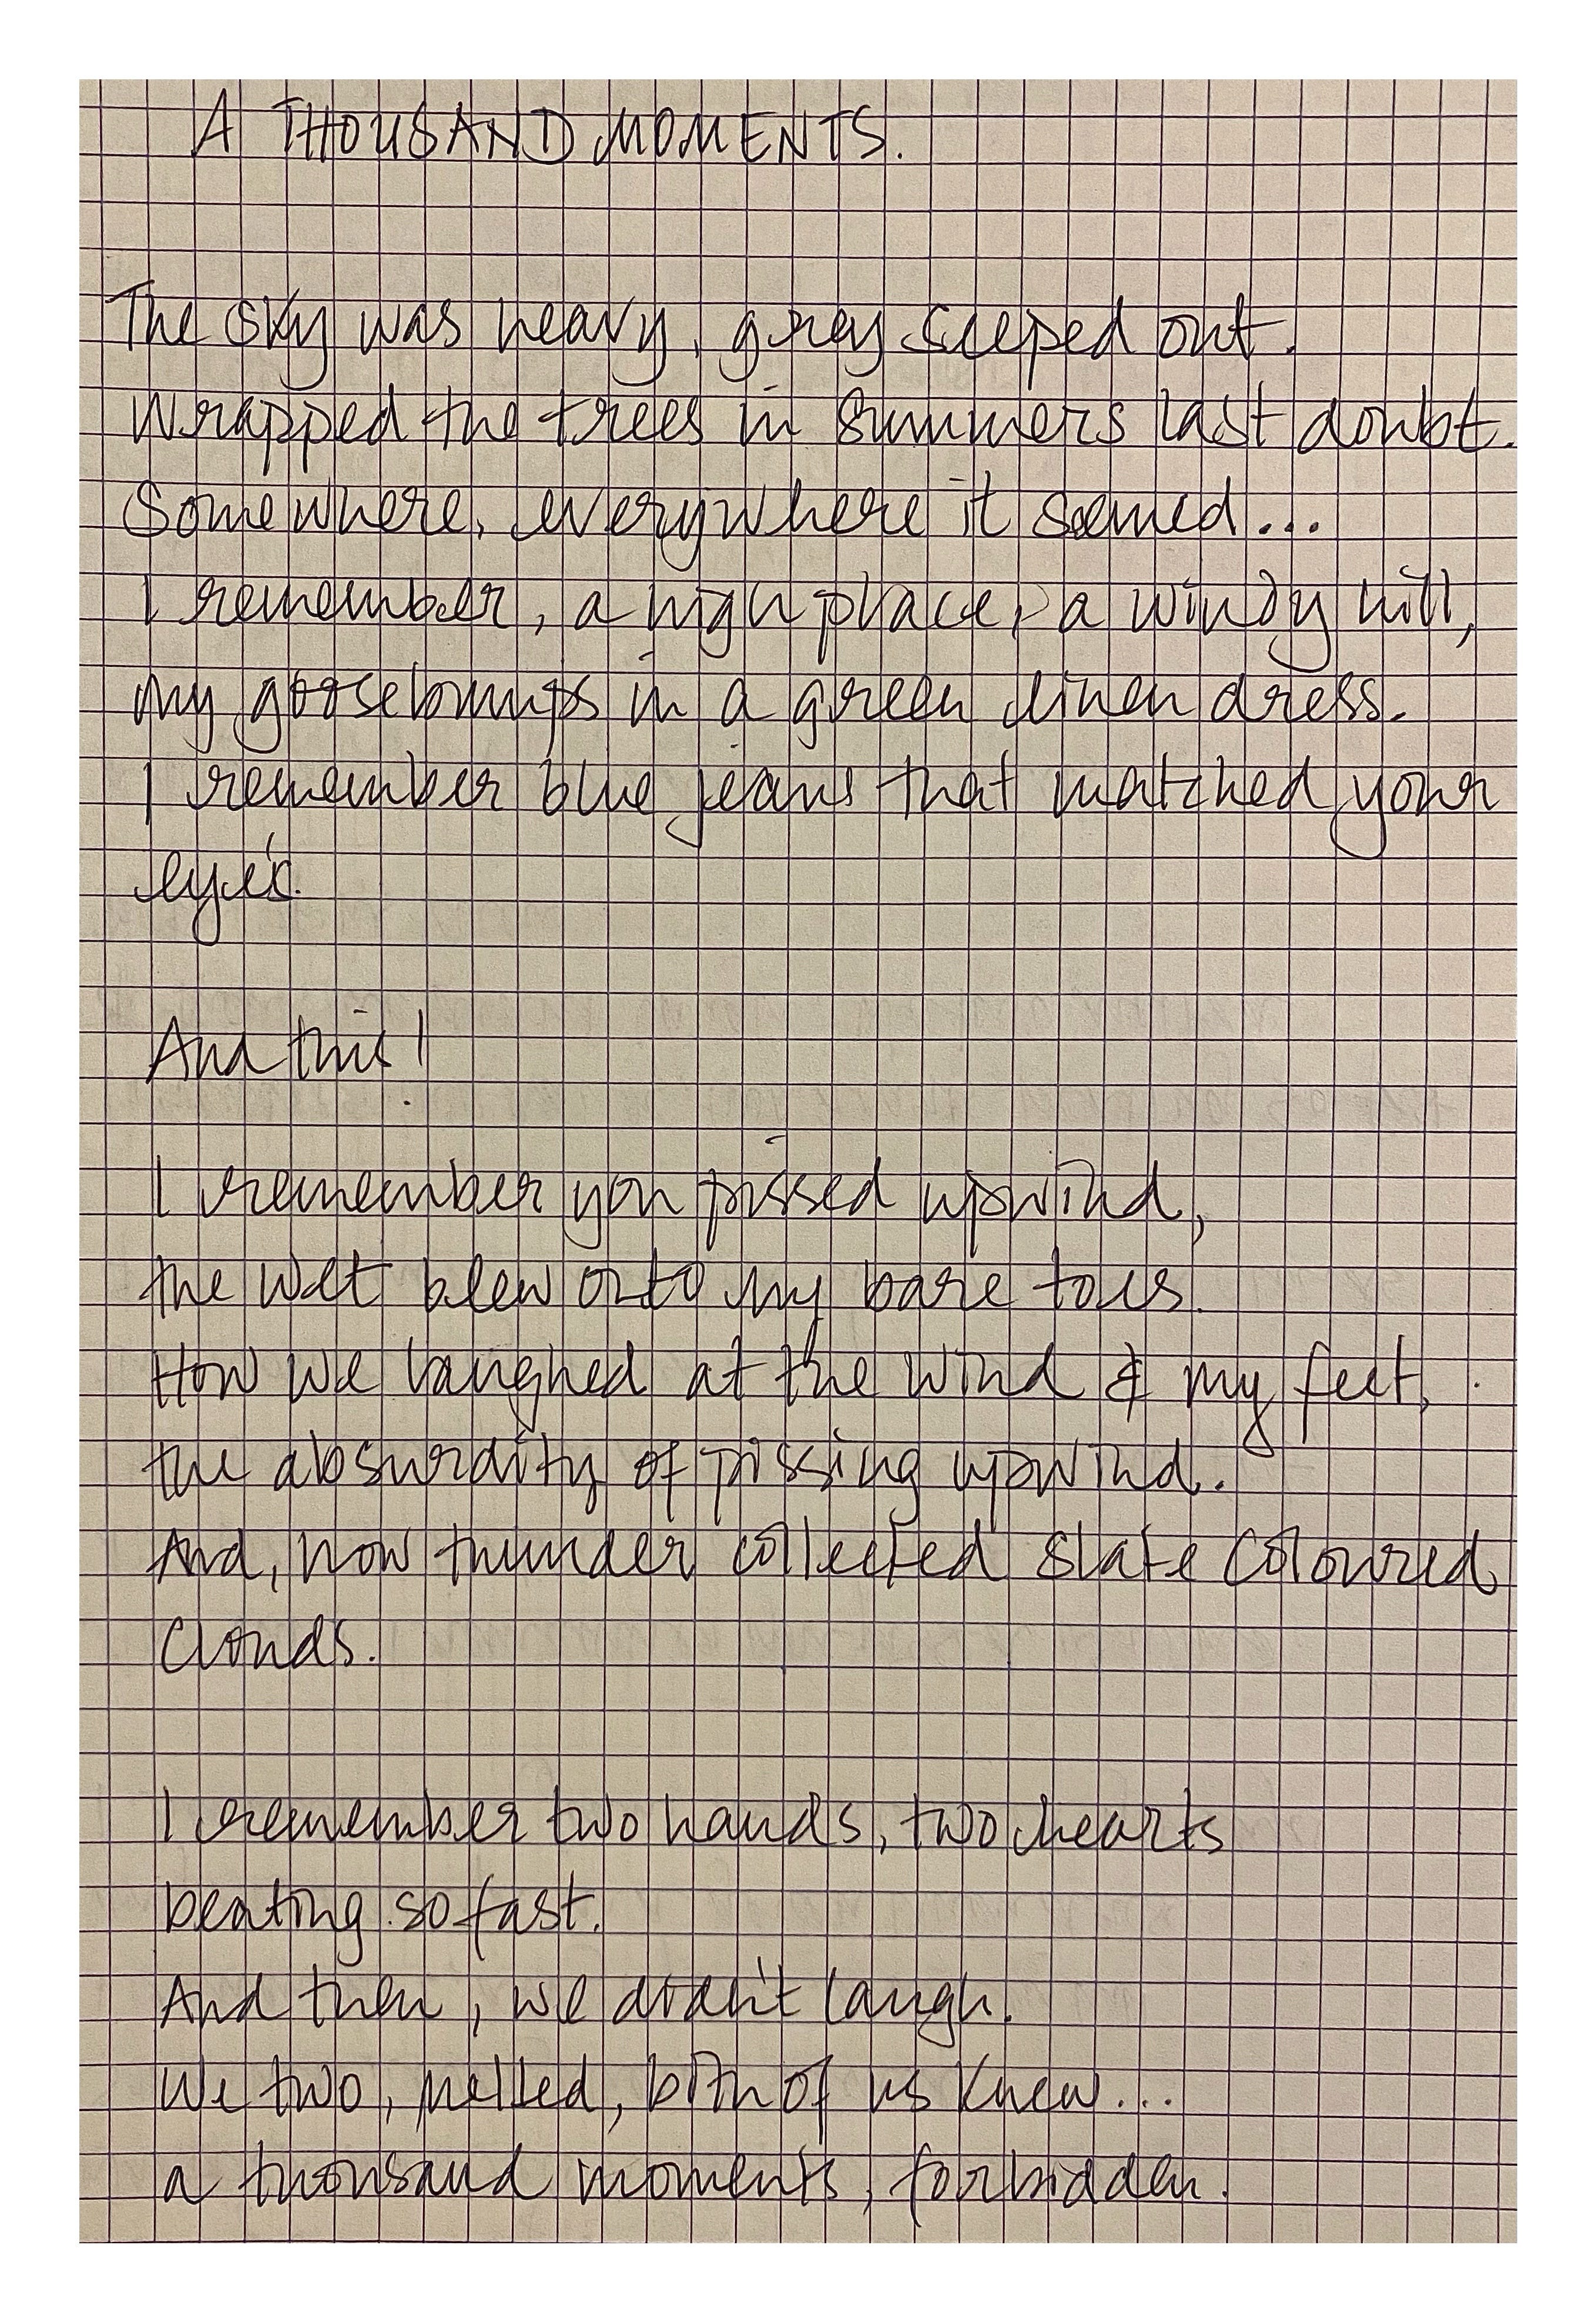 A THOUSAND MOMENTS.
The sky was heavy, grey seeped out.
Wrapped the trees in summers last doubt.
Somewhere, everywhere it seemed...
I remember, a high place, a windy hill,
my goosebumps in a green linen dress.
I remember blue jeans that matched your
eyes.
And this!
I remember you pissed upwind,
the wet blew onto my bare toes.
How we laughed at the wind & my feet,
the absurdity of pissing upwind.
And, how thunder collected slate coloured
clouds.
I remember two hands, two hearts
beating so fast.
And then, we didn't laugh.
We two, melted, both of us knew...
a thousand moments, forbidden.